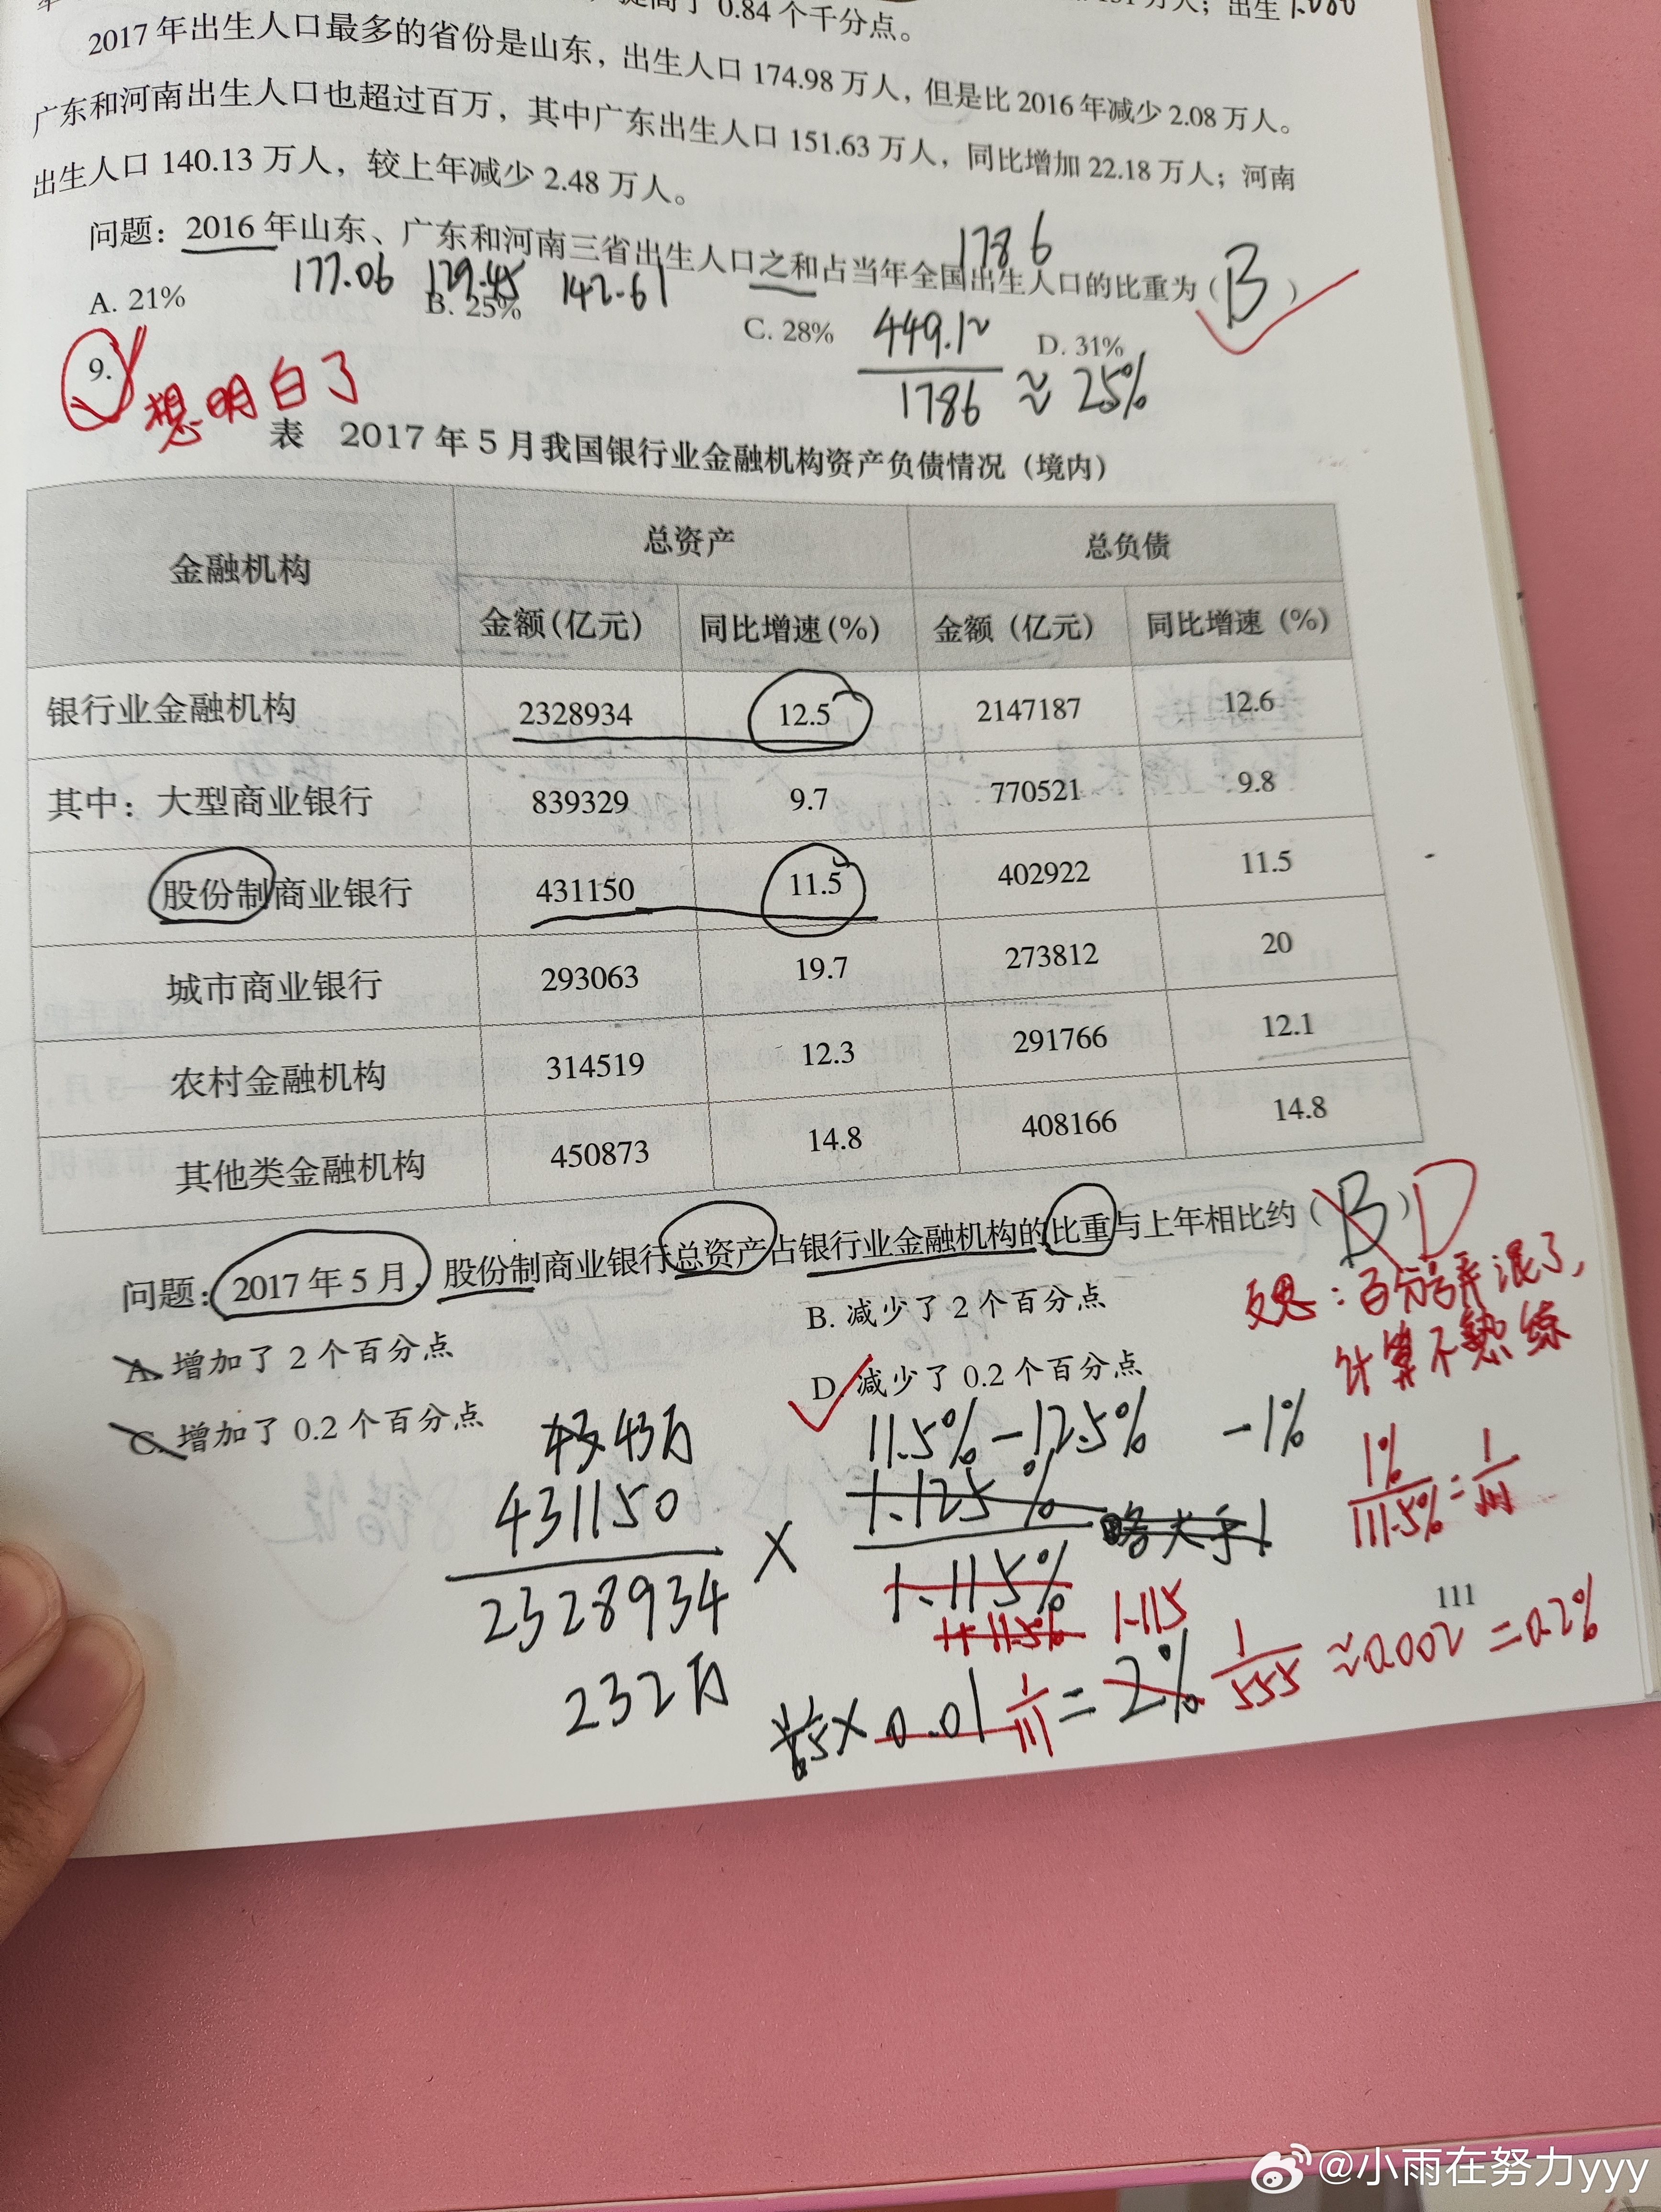 提高了 0.84 个千分点。
万人；出生
2017 年出生人口最多的省份是山东，出生人口 174.98 万人，但是比 2016 年减少 2.08 万人。
广东和河南出生人口也超过百万，其中广东出生人口 151.63 万人，同比增加 22.18 万人；河南
出生人口 140.13 万人，较上年减少 2.48 万人。
1786
问题：2016 年山东、广东和河南三省出生人口之和占当年全国出生人口的比重为（B）
177.06 129.45 142.61
A. 21% B. 25% C. 28% D. 31%
449.12
1786 ≈ 25%
9.
想明白了
表 2017 年 5 月我国银行业金融机构资产负债情况（境内）
金融机构 总资产 总负债
金额(亿元) 同比增速(%) 金额（亿元） 同比增速（%）
银行业金融机构 2328934 12.5 2147187 12.6
其中：大型商业银行 839329 9.7 770521 9.8
股份制商业银行 431150 11.5 402922 11.5
城市商业银行 293063 19.7 273812 20
农村金融机构 314519 12.3 291766 12.1
其他类金融机构 450873 14.8 408166 14.8
问题：2017 年 5 月，股份制商业银行总资产占银行业金融机构的比重与上年相比约（B）D
A. 增加了 2 个百分点 B. 减少了 2 个百分点
C. 增加了 0.2 个百分点 D. 减少了 0.2 个百分点
反思：百分号弄混了，
计算不熟练
43 43万 11.5%-12.5% -1%
431150
2328934 × 1.125%
1.115% 略大于1
1%
111.5% = 1/111
232万
1+11.5% 1.115
111
1/5 × 0.01 1/111 = 2% 1/555 ≈0.002 =0.2%
@小雨在努力yyy